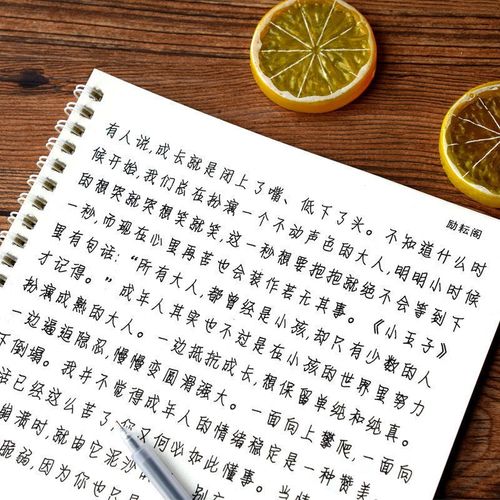 有人说,成长就是闭上了嘴、低下了头。不知道什么时
励耘阁
候开始,我们总在扮演一个不动声色的大人,明明小时候
的想哭就哭想笑就笑,这一秒想要抱抱就绝不会等到下
一秒,而现在心里再苦也会装作若无其事。《小王子》
里有句话:“所有大人,都曾经是小孩,却只有少数的人
才记得。”成年人其实也不过是在小孩的世界里努力
扮演成熟的大人。一边抵抗成长,想保留单纯和纯真。
一边逼迫隐忍,慢慢变圆滑强大。一面向上攀爬,一面向
下倒塌。我并不觉得成年人的情绪稳定是一种赞美
活已经这么苦了,你又何必如此懂事。当情
崩溃时,就由它泥沙
脆弱,因为你也只是